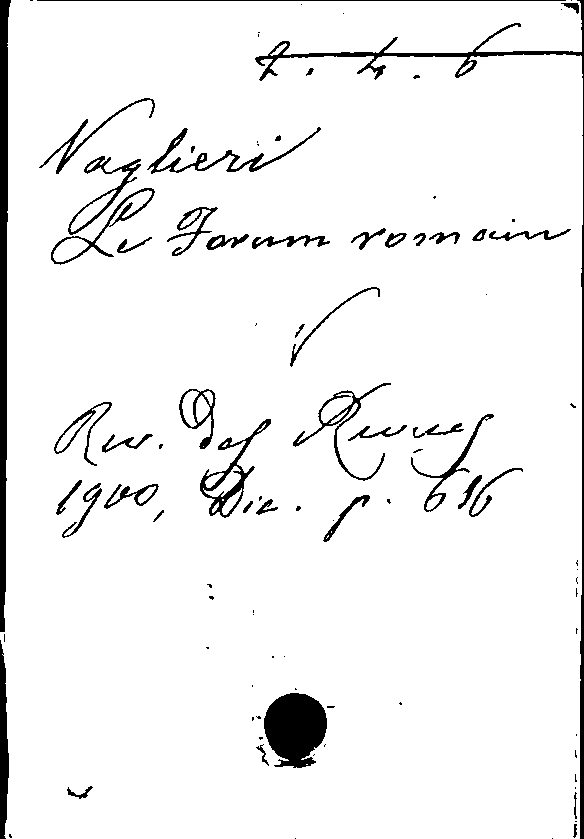 2. 4. 6
Vaglieri
Le Forum romain
V
Rev. des Revues
1900, Dic. p. 616